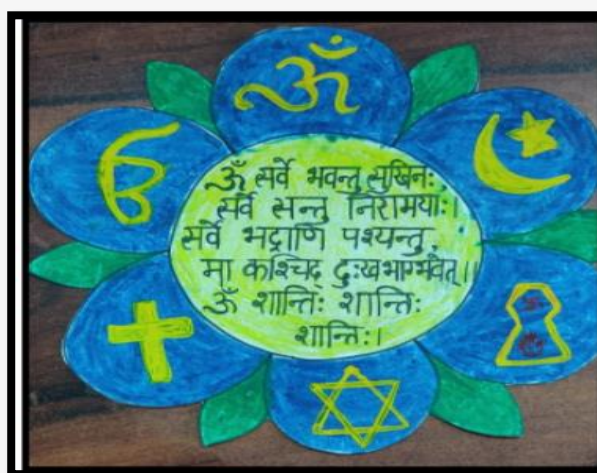 ॐ
ॐ सर्वे भवन्तु सुखिनः,
सर्वे सन्तु निरामयाः।
सर्वे भद्राणि पश्यन्तु,
मा कश्चिद् दुःखभाग्भवेत्।।
ॐ शान्तिः शान्तिः
शान्तिः।